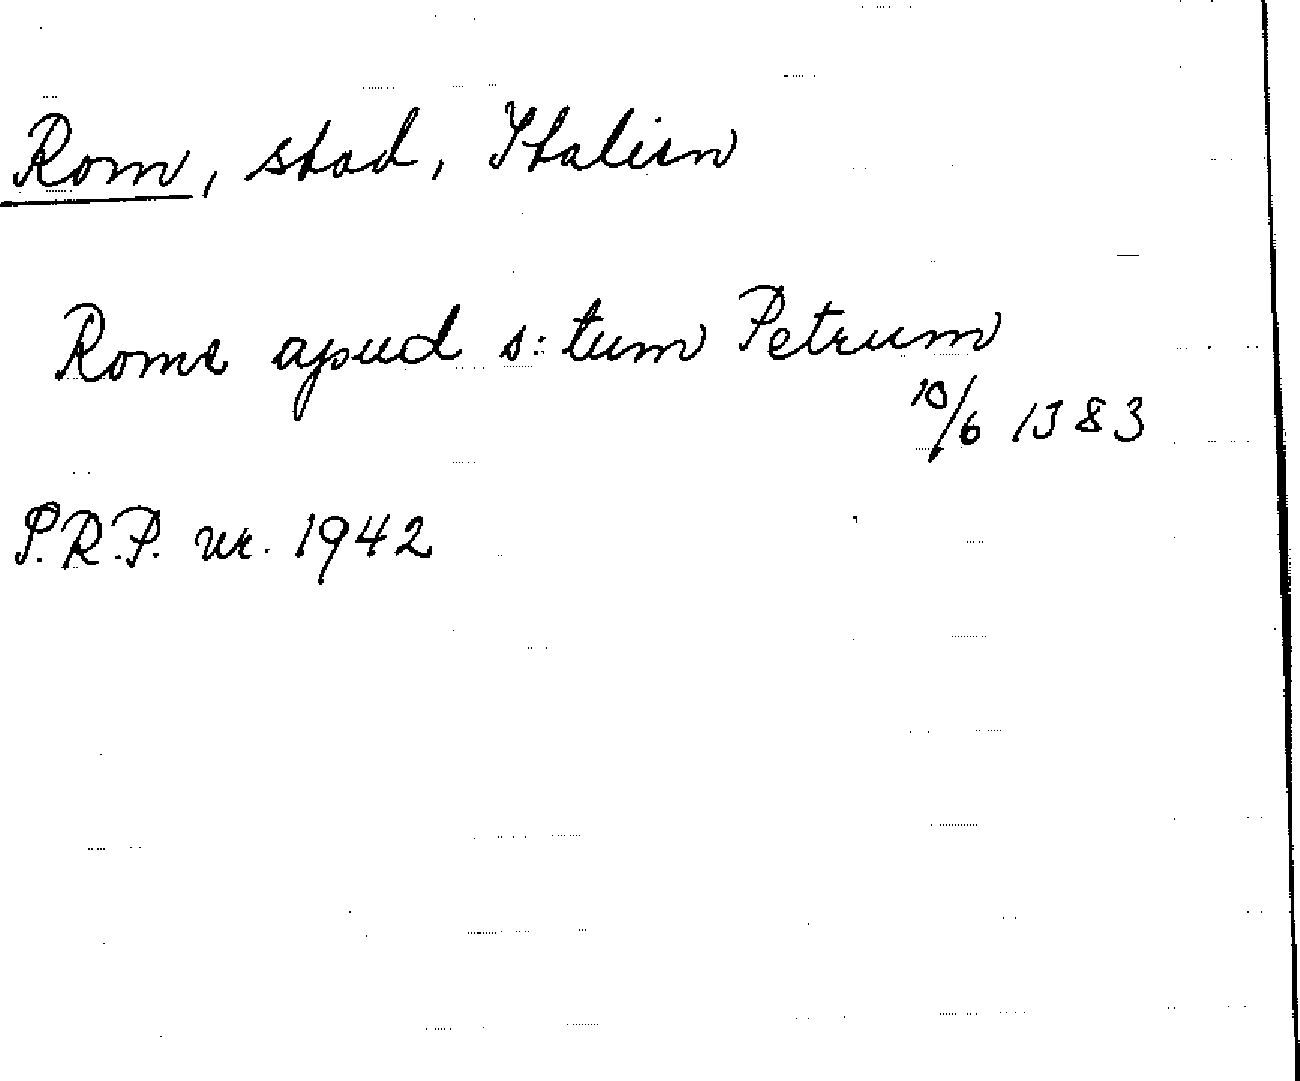 Rom, stad, Italien
Rome apud s:tum Petrum
10/6 1383
P.R.P. nr. 1942